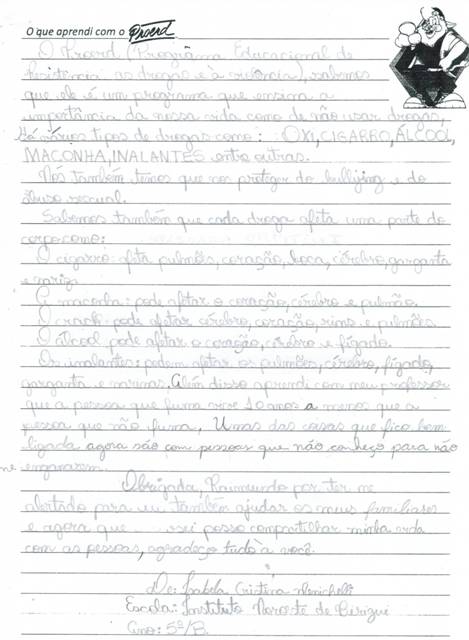 O que aprendi com o Proerd
O Proerd (Programa Educacional de
Resistência as drogas e à violência), sabemos
que ele é um programa que ensina a
importância da nossa vida como de não usar drogas,
Há vários tipos de drogas como: OXI, CIGARRO, ÁLCOOL,
MACONHA, INALANTES entre outras.
Nós também temos que nos proteger do bullying e do
abuso sexual.
Sabemos também que cada droga afeta uma parte do
corpo como:
O cigarro: afeta pulmões, coração, boca, cérebro, garganta
e nariz.
E maconha: pode afetar o coração, cérebro e pulmão.
O crack: pode afetar cérebro, coração, rins e pulmões.
O álcool pode afetar o coração, cérebro e fígado.
Os inalantes: podem afetar os pulmões, cérebro, fígado,
garganta e narinas. Além disso aprendi com meu professor
que a pessoa que fuma vive 10 anos a menos que a
pessoa que não fuma. Umas das coisas que fico bem
ligada agora são com pessoas que não conheço para não
me enganarem.
Obrigada, Raimundo por ter me
alertado para eu também ajudar os meus familiares
e agora que sei posso compartilhar minha vida
com as pessoas, agradeço tudo à você.
De: Isabela Cristina
Escola: Instituto Noroeste de Birigui
Ano: 5º/B